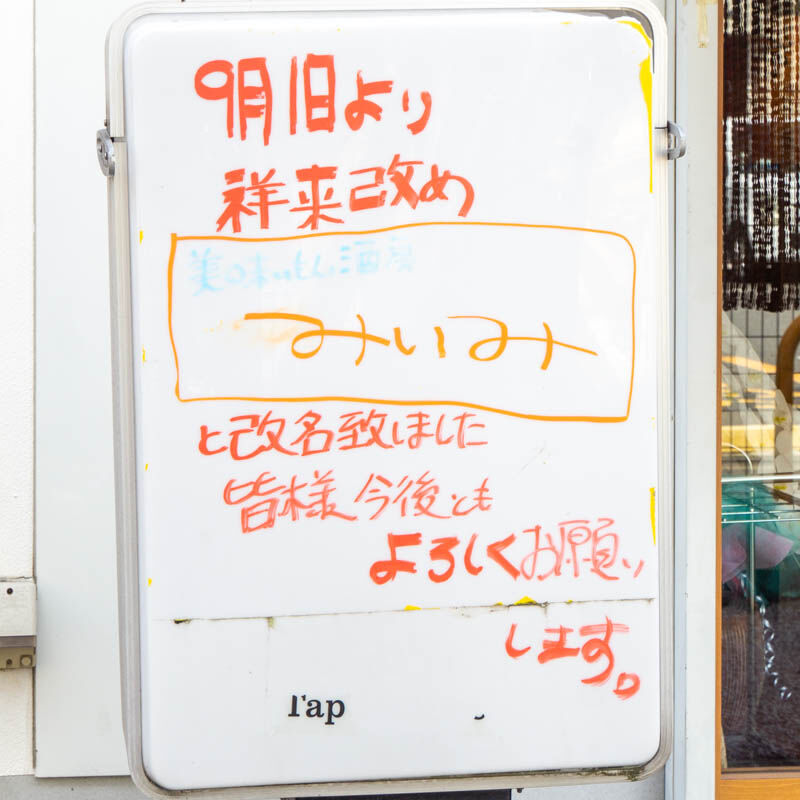 9月1日より
祥来改め
美の味っもん酒房
みぃみ
と改名致しました
皆様今後とも
よろしくお願い
します。
Tap